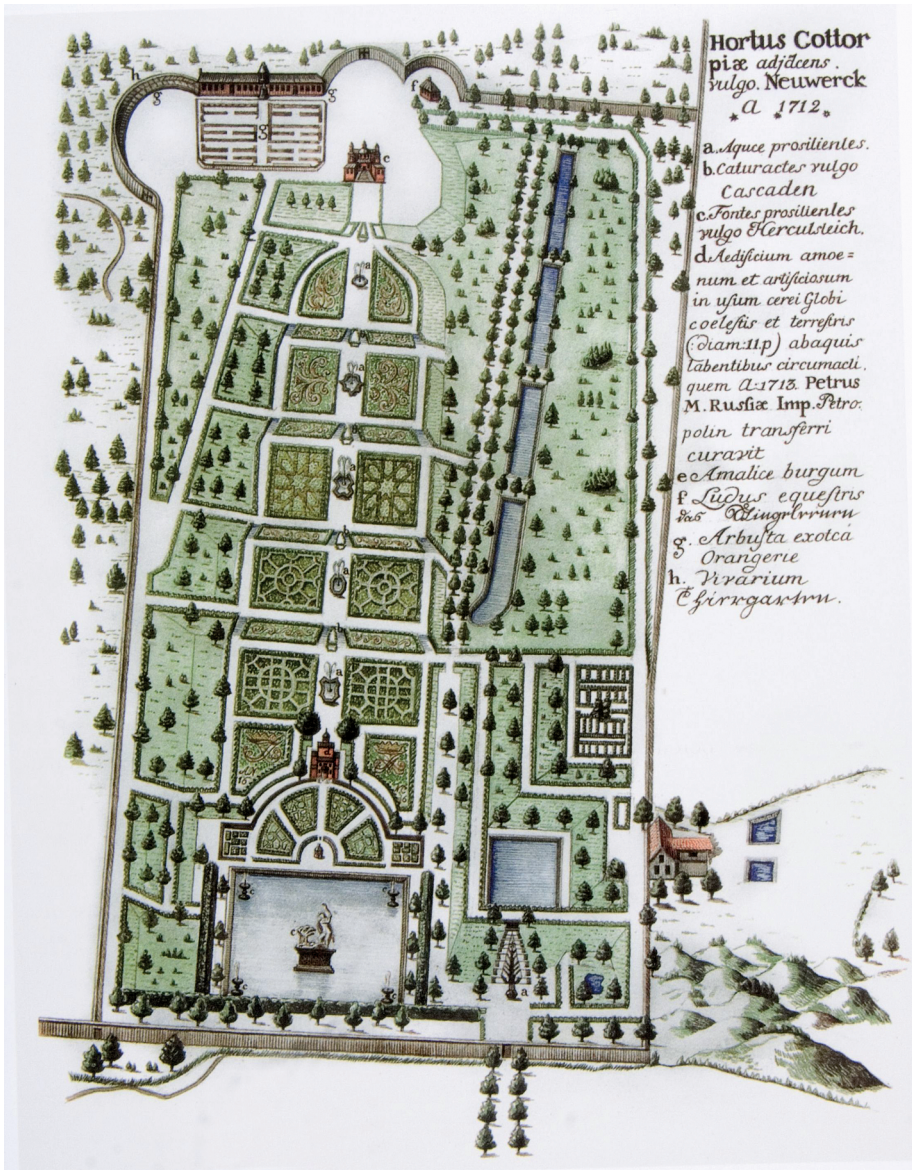 Hortus Cottor
piæ adjacens.
vulgo. Neuwerck
A 1712.
a. Aquce prosilientes.
b. Caturactes vulgo
Cascaden
c. Fontes prosilientes
vulgo Herculsteich.
d Aedificium amoe=
num et artificiosum
in usum cerei Globi
coelestis et terrestris
(diam:11.p) abaquis
labentibus circumacti.
quem A:1713. Petrus
M. Russiæ Imp. Petro-
polin transferri
curavit
e Amalice burgum
f Ludus equestris
das
g. Arbusta exotca
Orangerie
h. Vivarium
h
g
g
g
f
e
a
a
a
b
a
b
a
d
c
c
c
a